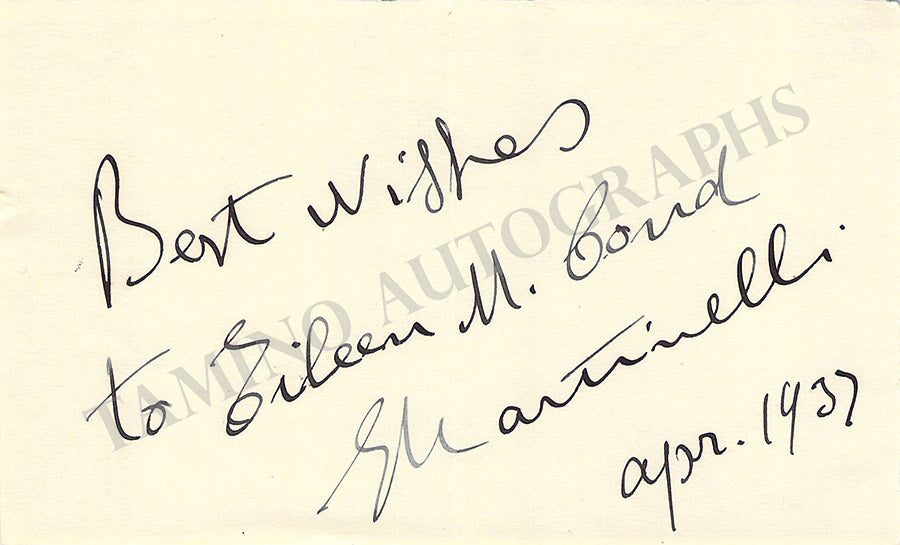 Best Wishes
to Eileen M. Cond
GMartinelli
apr. 1937
TAMINO AUTOGRAPHS